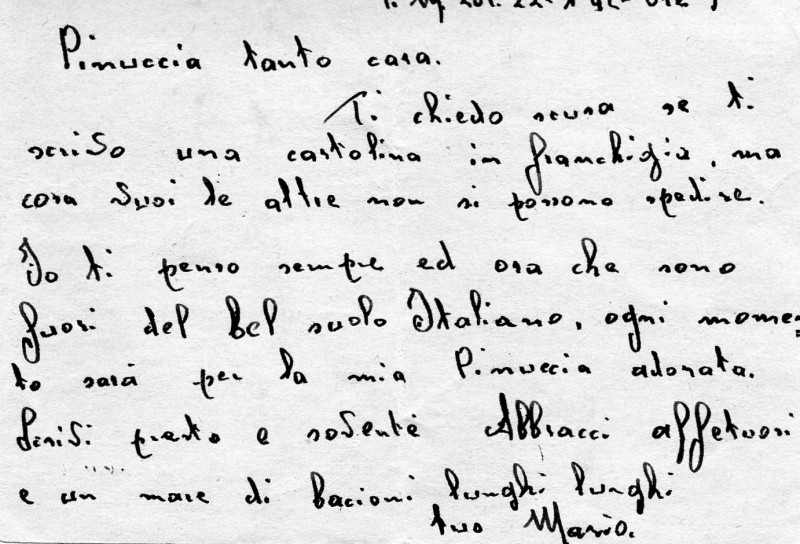 Pinuccia tanto cara.
Ti chiedo scusa se ti
scrivo una cartolina in franchigia, ma
cosa vuoi le altre non si possono spedire.
Io ti penso sempre ed ora che sono
fuori del bel suolo Italiano, ogni momen=
to sarà per la mia Pinuccia adorata.
Scrivi presto e sovente Abbracci affetuosi
e un mare di bacioni lunghi lunghi
tuo Mario.